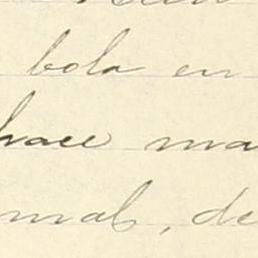 bola en
hace ma
mal, de